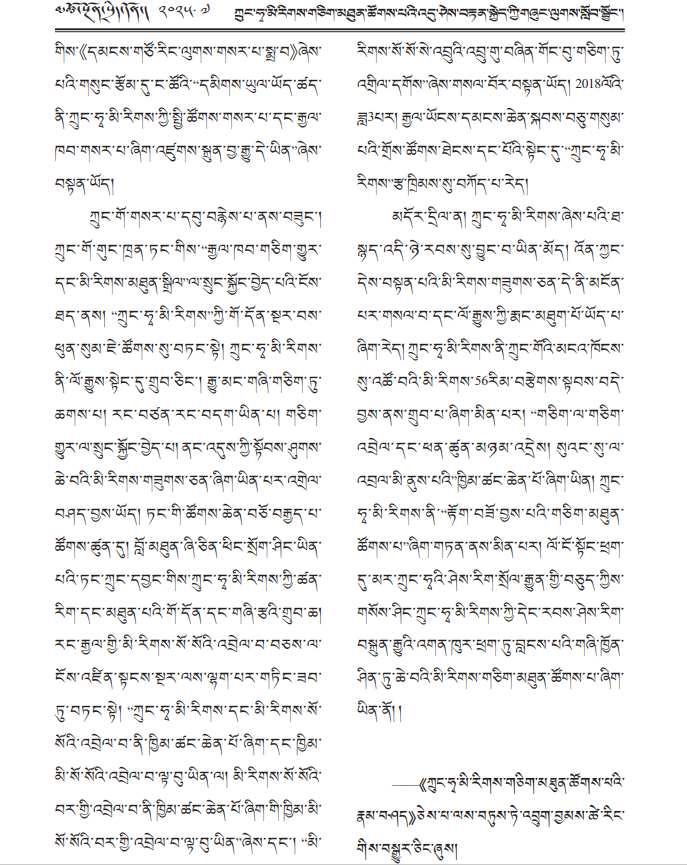 ༢༠༢༥.༧ ཀྲུང་ཧྭ་མི་རིགས་གཅིག་མཐུན་ཚོགས་པའི་འདུ་ཤེས་བརྟན་སྐྱེད་ཀྱི་གཞུང་ལུགས་སློབ་སྦྱོང་།
གིས་《དམངས་གཙོ་རིང་ལུགས་གསར་པ་སྨྲ་བ》ཞེས་
པའི་གསུང་རྩོམ་དུ་ང་ཚོའི་“དམིགས་ཡུལ་ཡོད་ཚད་
ནི་ཀྲུང་ཧྭ་མི་རིགས་ཀྱི་སྤྱི་ཚོགས་གསར་པ་དང་རྒྱལ་
ཁབ་གསར་པ་ཞིག་འཛུགས་སྐྲུན་བྱ་རྒྱུ་དེ་ཡིན”ཞེས་
བསྟན་ཡོད།
ཀྲུང་གོ་གསར་པ་དབུ་བརྙེས་པ་ནས་བཟུང་།
ཀྲུང་གོ་གུང་ཁྲན་ཏང་གིས་“རྒྱལ་ཁབ་གཅིག་གྱུར་
དང་མི་རིགས་མཐུན་སྒྲིལ”ལ་སྲུང་སྐྱོང་བྱེད་པའི་ངོས་
ཐད་ནས། “ཀྲུང་ཧྭ་མི་རིགས”ཀྱི་གོ་དོན་སྔར་བས་
ཕུན་སུམ་ཇེ་ཚོགས་སུ་བཏང་སྟེ། ཀྲུང་ཧྭ་མི་རིགས་
ནི་ལོ་རྒྱུས་སྟེང་དུ་གྲུབ་ཅིང་། རྒྱུ་མང་གཞི་གཅིག་ཏུ་
ཆགས་པ། རང་བཙན་རང་བདག་ཡིན་པ། གཅིག་
གྱུར་ལ་སྲུང་སྐྱོང་བྱེད་པ། ནང་འདུས་ཀྱི་སྟོབས་ཤུགས་
ཆེ་བའི་མི་རིགས་གཟུགས་ཅན་ཞིག་ཡིན་པར་འགྲེལ་
བཤད་བྱས་ཡོད། ཏང་གི་ཚོགས་ཆེན་བཅོ་བརྒྱད་པ་
ཚོགས་ཚུན་དུ། བློ་མཐུན་ཞི་ཅིན་ཕིང་སྲོག་ཤིང་ཡིན་
པའི་ཏང་ཀྲུང་དབྱང་གིས་ཀྲུང་ཧྭ་མི་རིགས་ཀྱི་ཚན་
རིག་དང་མཐུན་པའི་གོ་དོན་དང་གཞི་རྩའི་གྲུབ་ཆ།
རང་རྒྱལ་གྱི་མི་རིགས་སོ་སོའི་འབྲེལ་བ་བཅས་ལ་
ངོས་འཛིན་སྟངས་སྔར་ལས་ལྷག་པར་གཏིང་ཟབ་
ཏུ་བཏང་སྟེ། “ཀྲུང་ཧྭ་མི་རིགས་དང་མི་རིགས་སོ་
སོའི་འབྲེལ་བ་ནི་ཁྱིམ་ཚང་ཆེན་པོ་ཞིག་དང་ཁྱིམ་
མི་སོ་སོའི་འབྲེལ་བ་ལྟ་བུ་ཡིན་ལ། མི་རིགས་སོ་སོའི་
བར་གྱི་འབྲེལ་བ་ནི་ཁྱིམ་ཚང་ཆེན་པོ་ཞིག་གི་ཁྱིམ་མི་
སོ་སོའི་བར་གྱི་འབྲེལ་བ་ལྟ་བུ་ཡིན”ཞེས་དང་། “མི་
རིགས་སོ་སོ་སེ་འབྲུའི་འབྲུ་གུ་བཞིན་གོང་བུ་གཅིག་ཏུ་
འགྲིལ་དགོས”ཞེས་གསལ་བོར་བསྟན་ཡོད། 2018ལོའི་
ཟླ3པར། རྒྱལ་ཡོངས་དམངས་ཆེན་སྐབས་བཅུ་གསུམ་
པའི་གྲོས་ཚོགས་ཐེངས་དང་པོའི་སྟེང་དུ་“ཀྲུང་ཧྭ་མི་
རིགས”རྩ་ཁྲིམས་སུ་བཀོད་པ་རེད།
མདོར་དྲིལ་ན། ཀྲུང་ཧྭ་མི་རིགས་ཞེས་པའི་ཐ་
སྙད་འདི་ཉེ་རབས་སུ་བྱུང་བ་ཡིན་མོད། འོན་ཀྱང་
དེས་བསྟན་པའི་མི་རིགས་གཟུགས་ཅན་དེ་ནི་མངོན་
པར་གསལ་བ་དང་ལོ་རྒྱུས་ཀྱི་རྨང་མཐུག་པོ་ཡོད་པ་
ཞིག་རེད། ཀྲུང་ཧྭ་མི་རིགས་ནི་ཀྲུང་གོའི་མངའ་ཁོངས་
སུ་འཚོ་བའི་མི་རིགས་56རིམ་བརྩེགས་སྟབས་བདེ་
བྱས་ནས་གྲུབ་པ་ཞིག་མིན་པར། “གཅིག་ལ་གཅིག་
འབྲེལ་དང་ཕན་ཚུན་མཉམ་འདྲེས། སུའང་སུ་ལ་
འབྲལ་མི་ནུས་པའི”ཁྱིམ་ཚང་ཆེན་པོ་ཞིག་ཡིན། ཀྲུང་
ཧྭ་མི་རིགས་ནི་“རྟོག་བཟོ་བྱས་པའི་གཅིག་མཐུན་
ཚོགས་པ”ཞིག་གཏན་ནས་མིན་པར། ལོ་ངོ་སྟོང་ཕྲག་
དུ་མར་ཀྲུང་ཧྭའི་ཤེས་རིག་སྲོལ་རྒྱུན་གྱི་བཅུད་ཀྱིས་
གསོས་ཤིང་ཀྲུང་ཧྭ་མི་རིགས་ཀྱི་དེང་རབས་ཤེས་རིག་
བསྐྲུན་རྒྱུའི་འགན་ཁུར་ཕྲག་ཏུ་བླངས་པའི་གཞི་ཁྱོན་
ཤིན་ཏུ་ཆེ་བའི་མི་རིགས་གཅིག་མཐུན་ཚོགས་པ་ཞིག་
ཡིན་ནོ། །
——《ཀྲུང་ཧྭ་མི་རིགས་གཅིག་མཐུན་ཚོགས་པའི་
རྣམ་བཤད》ཅེས་པ་ལས་བཏུས་ཏེ་འབྲུག་བྱམས་ཚེ་རིང་
གིས་བསྒྱུར་ཅིང་ཞུས།